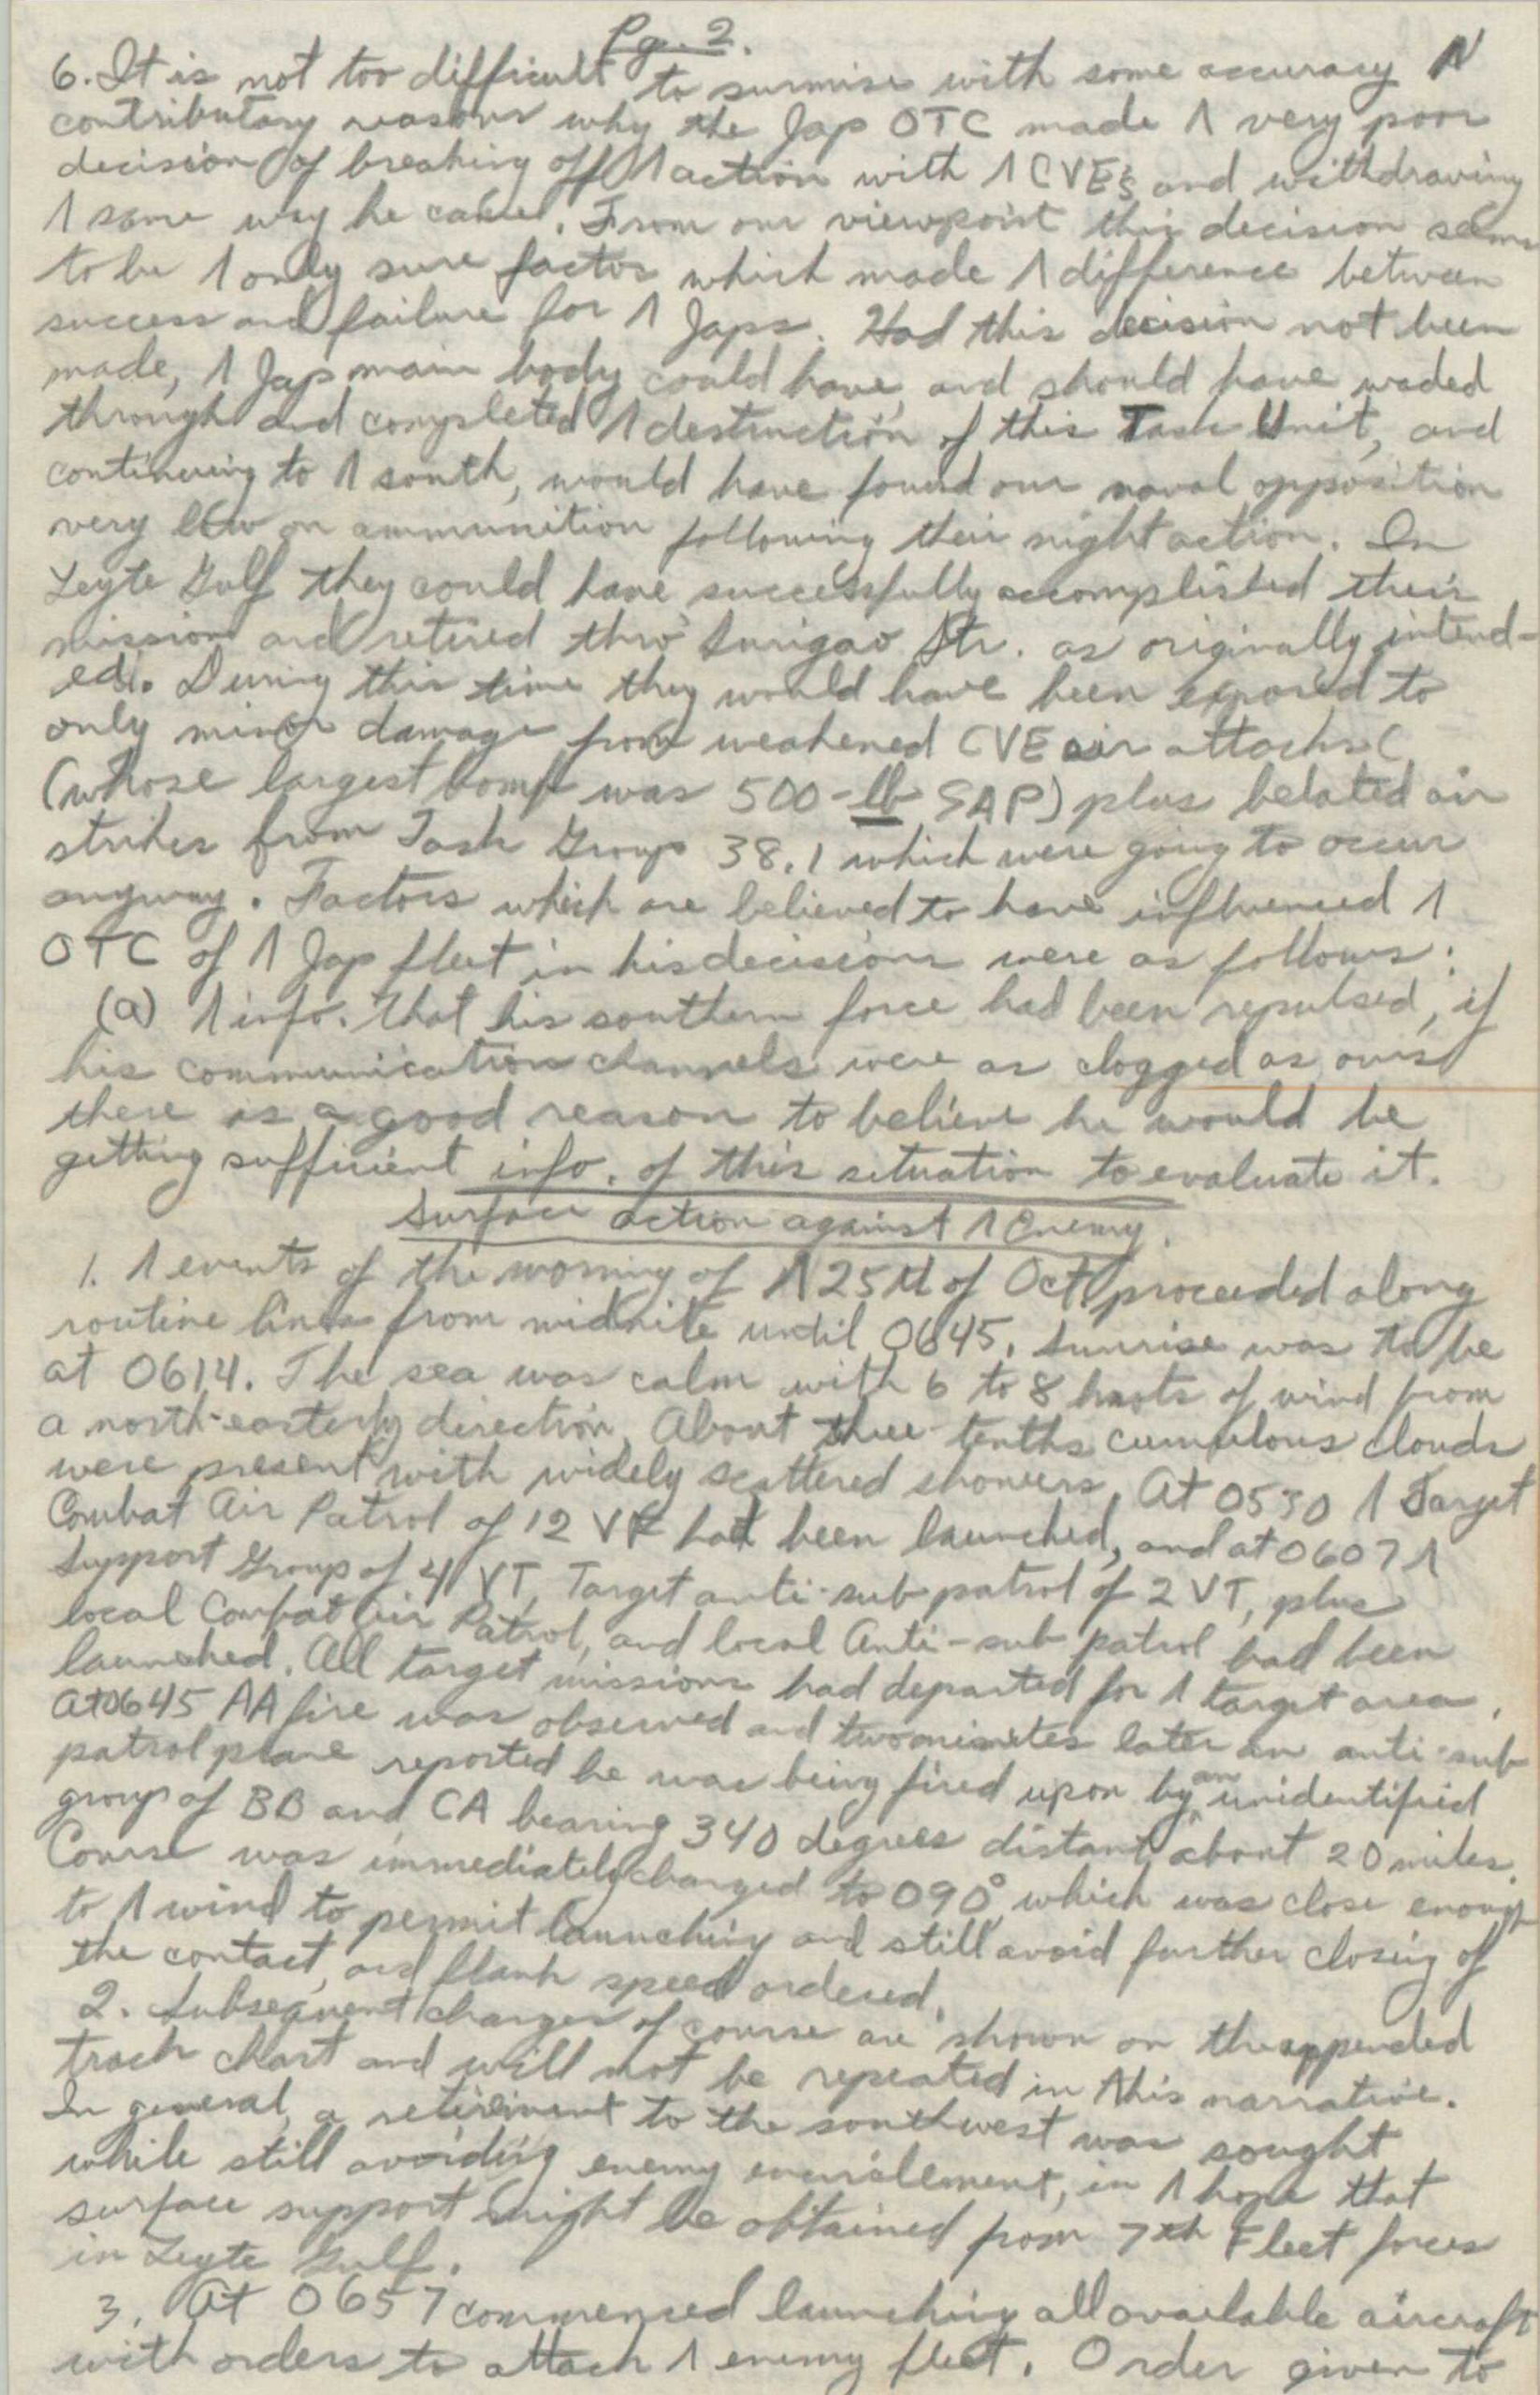 Pg. 2.
6. It is not too difficult to surmise with some accuracy /\
contributory reasons why the Jap OTC made /\ very poor
decision of breaking off /\ action with /\ CVE's and withdrawing
/\ same way he came. From our viewpoint this decision seems
to be /\ only sure factor which made /\ difference between
success and failure for /\ Japs. Had this decision not been
made, /\ Jap main body could have, and should have waded
through and completed /\ destruction of this Task Unit, and
continuing to /\ south, would have found our naval opposition
very low on ammunition following their night action. In
Leyte Gulf they could have successfully accomplished their
mission and retired thro' Surigao Str. as originally intend-
ed. During this time they would have been exposed to
only minor damage from weakened CVE air attacks (
(whose largest bomb was 500-lb SAP) plus belated air
strikes from Task Group 38.1 which were going to occur
anyway. Factors which are believed to have influenced /\
OTC of /\ Jap fleet in his decisions were as follows:
(a) /\ info. that his southern force had been repulsed, if
his communication channels were as clogged as ours
there is a good reason to believe he would be
getting sufficient info. of this situation to evaluate it.
Surface action against /\ Enemy.
1. /\ events of the morning of /\ 25th of Oct. proceeded along
routine lines from midnite until 0645. Sunrise was to be
at 0614. The sea was calm with 6 to 8 knots of wind from
a north-easterly direction. About three-tenths cumulous clouds
were present with widely scattered showers. At 0530 /\ Target
Combat Air Patrol of 12 VF had been launched, and at 0607 /\
Support Group of 4 VT, Target anti-sub patrol of 2 VT, plus
local Combat Air Patrol, and local Anti-sub patrol had been
launched. All target missions had departed for /\ target area.
At 0645 AA fire was observed and two minutes later an anti-sub
patrol plane reported he was being fired upon by an unidentified
group of BB and CA bearing 340 degrees distant about 20 miles.
Course was immediately changed to 090° which was close enough
to /\ wind to permit launching and still avoid further closing of
the contact, and flank speed ordered.
2. Subsequent changes of course are shown on the appended
track chart and will not be repeated in this narrative.
In general, a retirement to the southwest was sought
while still avoiding enemy encirclement, in /\ hope that
surface support might be obtained from 7th Fleet forces
in Leyte Gulf.
3. At 0657 commenced launching all available aircraft
with orders to attack /\ enemy fleet. Order given to